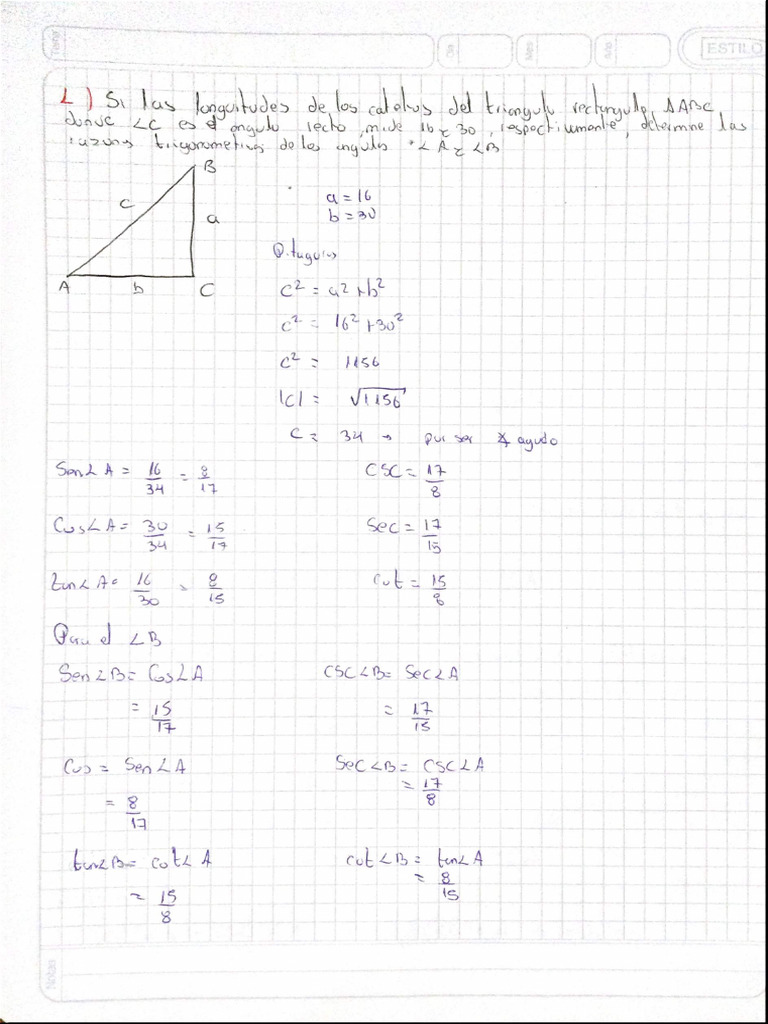 Tema
Día
Mes
Año
ESTILO
1) Si las longuitudes de los catetos del triangulo rectangulo ΔABC
donde ∠C es el angulo recto, mide 16 y 30, respectivamente, determine las
razones trigonometricas de los angulos ∠A y ∠B
B
c
a
A b C
a = 16
b = 30
Pitagoras
c² = a² + b²
c² = 16² + 30²
c² = 1156
|c| = √1156
c = 34 → por ser ∡ agudo
Sen∠A = 16/34 = 8/17 CSC = 17/8
Cos∠A = 30/34 = 15/17 Sec = 17/15
tan∠A = 16/30 = 8/15 cot = 15/8
Para el ∠B
Sen∠B = Cos∠A CSC∠B = Sec∠A
= 15/17 = 17/15
Cos = Sen∠A Sec∠B = CSC∠A
= 8/17 = 17/8
tan∠B = cot∠A cot∠B = tan∠A
= 15/8 = 8/15
Notas